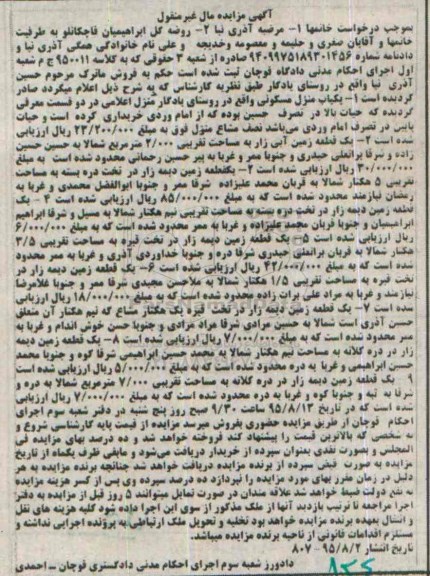 آگهی مزایده مال غیرمنقول
بموجب درخواست خانمها ۱- مرضیه آذری نیا ۲- روضه گل ابراهیمیان قاچکانلو به طرفیت
خانمها و آقایان صغری و حلیمه و معصومه وخدیجه و علی نام خانوادگی همگی آذری نیا و
دادنامه شماره ۹۴۰۹۹۷۵۱۸۹۳۰۱۴۵۶ صادره از شعبه ۳ حقوقی که به کلاسه ۹۵۰۰۱۱ ج م شعبه
اول اجرای احکام مدنی دادگاه قوچان ثبت شده است حکم به فروش ماترک مرحوم حسین
آذری نیا واقع در روستای یادگار طبق نظریه کارشناس که به شرح ذیل اعلام میگردد صادر
گردیده است ۱-یکباب منزل مسکونی واقع در روستای یادگار منزل اعلامی در دو قسمت معرفی
گردیده که حیات بالا در تصرف حسین بوده که از امام وردی خریداری گرده است و حیات
پایین در تصرف امام وردی می‌باشد نصف مشاع منزل فوق به مبلغ ۲۳/۲۰۰/۰۰۰ ریال ارزیابی
شده است ۲- یک قطعه زمین آبی زار به مساحت تقریبی ۲/۰۰۰ مترمربع شمالا به حسین حسین
زاده و شرقا براتعلی حیدری و جنوبا ممر و غربا به پیر حسین رحمانی محدود شده است به مبلغ
۳۰/۰۰۰/۰۰۰ ریال ارزیابی شده است ۳- یکقطعه زمین دیمه زار در تخت دره بسته به مساحت
تقریبی ۵ هکتار شمالا به قربان محمد علیزاده شرقا ممر و جنوبا ابوالفضل محمدی و غربا به
رمضان نیازمند محدود شده است که به مبلغ ۸۵/۰۰۰/۰۰۰ ریال ارزیابی شده است ۴ - یک
قطعه زمین دیمه زار در تخت دره بسته به مساحت تقریبی نیم هکتار شمالا به مسیل و شرقا ابراهیم
ابراهیمیان و جنوبا قربان محمد علیزاده و غربا به ممر محدود شده است که به مبلغ ۶/۰۰۰/۰۰۰
ریال ارزیابی شده است ۵- یک قطعه زمین دیمه زار در تخت قبره به مساحت تقریبی ۳/۵
هکتار شمالا به قربان براتعلی حیدری شرقا دره و جنوبا خداوردی آذری و غربا به ممر محدود
شده است که به مبلغ ۴۲/۰۰۰/۰۰۰ ریال ارزیابی شده است ۶- یک قطعه زمین دیمه زار در
تخت قبره به مساحت تقریبی ۱/۵ هکتار شمالا به ملاحسن مجیدی شرقا ممر و جنوبا غلامرضا
نیازمند و غربا به مراد علی برات زاده محدود شده است که به مبلغ ۱۸/۰۰۰/۰۰۰ ریال ارزیابی
شده است ۷- یک قطعه زمین دیمه زار در تخت قبره یک هکتار مشاع که نیم هکتار آن متعلق
حسین آذری است شمالا به حسین مرادی شرقا مراد مرادی و جنوبا حسن خوش اندام و غربا به
ممر محدود شده است که به مبلغ ۷/۰۰۰/۰۰۰ ریال ارزیابی شده است ۸- یک قطعه زمین دیمه
زار در دره کلاته به مساحت نیم هکتار شمالا به محمد حسین ابراهیمی شرقا کوه و جنوبا محمد
حسین ابراهیمی و غربا به دره محدود شده است که به مبلغ ۵/۰۰۰/۰۰۰ ریال ارزیابی شده است
۹- یک قطعه زمین دیمه زار در دره کلاته به مساحت تقریبی ۷/۰۰۰ مترمربع شمالا به دره و
شرقا به تپه و جنوبا کوه و غربا به دره محدود شده است که به مبلغ ۷/۰۰۰/۰۰۰ ریال ارزیابی
شده است که در تاریخ ۹۵/۸/۱۳ ساعت ۹/۳۰ صبح روز پنج شنبه در دفتر شعبه سوم اجرای
احکام قوچان از طریق مزایده حضوری بفروش میرسد مزایده از قیمت پایه کارشناسی شروع و
به شخصی که بالاترین قیمت را پیشنهاد کند فروخته خواهد شد و ده درصد بهای مزایده فی
المجلس و بصورت نقدی بعنوان سپرده از خریدار دریافت می‌شود و مابقی ظرف یکماه از تاریخ
مزایده به صورت فیش سپرده از برنده مزایده دریافت خواهد شد چنانچه برنده مزایده به هر
دلیل در زمان مقرر بهای مورد مزایده را نپردازد ده درصد سپرده وی پس از کسر هزینه مزایده
به نفع دولت ضبط خواهد شد علاقه مندان در صورت تمایل میتوانند ۵ روز قبل از مزایده به دفتر
اجرا مراجعه تا ترتیب بازدید آنها از ملک مذکور از سوی این اجرا داده شود کلیه هزینه های نقل
و انتقال بعهده برنده مزایده خواهد بود تخلیه و تحویل ملک ارتباطی به پرونده اجرایی نداشته و
مستلزم اقدامات قانونی از ناحیه برنده مزایده میباشد.
تاریخ انتشار ۹۵/۸/۲ - ۸۰۷
دادورز شعبه سوم اجرای احکام مدنی دادگستری قوچان – احمدی